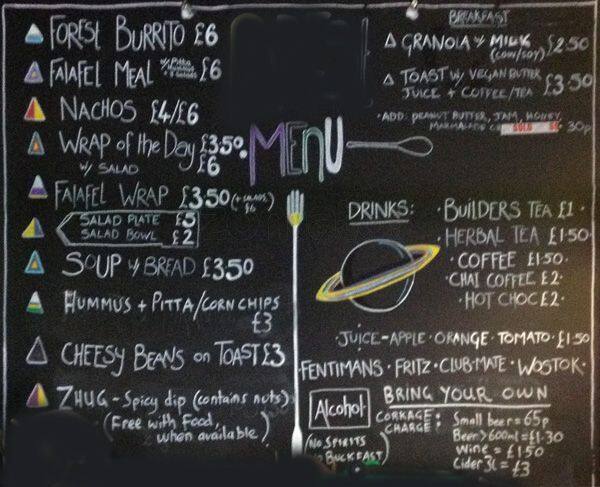 FOREST BURRITO £6
FALAFEL MEAL w/ Pitta, Hummus + 3 Salads £6
NACHOS £4/£6
WRAP of the DAY £3.50
w/ SALAD £6
FALAFEL WRAP £3.50 (+ SALADS £6)
SALAD PLATE £5
SALAD BOWL £2
SOUP w/ BREAD £3.50
HUMMUS + PITTA/CORN CHIPS
£3
CHEESY BEANS on TOAST £3
ZHUG - Spicy dip (contains nuts)
(Free with Food, when available)
MENU
BREAKFAST
GRANOLA w/ MILK (cow/soy) £2.50
TOAST w/ VEGAN BUTTER
JUICE + COFFEE/TEA £3.50
· ADD: PEANUT BUTTER, JAM, HONEY,
MARMALADE SOLD 30p
DRINKS:
· BUILDERS TEA £1 ·
· HERBAL TEA £1.50 ·
· COFFEE £1.50 ·
· CHAI COFFEE £2 ·
· HOT CHOC £2 ·
· JUICE - APPLE · ORANGE · TOMATO · £1.50
FENTIMANS · FRITZ · CLUB-MATE · WOSTOK ·
Alcohol
(No SPIRITS
BUCKFAST)
BRING YOUR OWN
CORKAGE CHARGE:
Small beer = 65p
Beer > 600ml = £1.30
Wine = £1.50
Cider 3L = £3